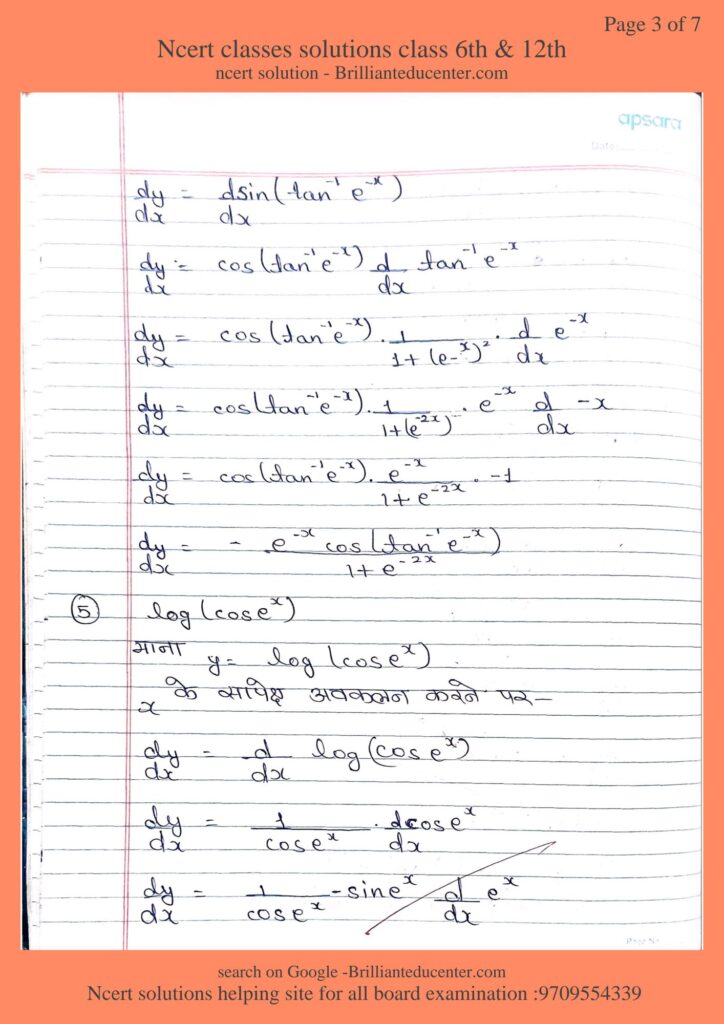 Page 3 of 7
Ncert classes solutions class 6th & 12th
ncert solution - Brillianteducenter.com
apsara
Date:
dy/dx = dsin(tan⁻¹ e⁻ˣ)/dx
dy/dx = cos(tan⁻¹e⁻ˣ) d/dx tan⁻¹e⁻ˣ
dy/dx = cos(tan⁻¹e⁻ˣ) · 1/1+(e⁻ˣ)² · d/dx e⁻ˣ
dy/dx = cos(tan⁻¹e⁻ˣ) · 1/1+(e⁻²ˣ) · e⁻ˣ d/dx -x
dy/dx = cos(tan⁻¹e⁻ˣ) · e⁻ˣ/1+e⁻²ˣ · -1
dy/dx = - e⁻ˣ cos(tan⁻¹e⁻ˣ)/1+e⁻²ˣ
⑤ log(cos eˣ)
माना y = log(cos eˣ)
x के सापेक्ष अवकलन करने पर-
dy/dx = d/dx log(cos eˣ)
dy/dx = 1/cos eˣ · dcos eˣ/dx
dy/dx = 1/cos eˣ -sin eˣ d/dx eˣ
Page No
search on Google -Brillianteducenter.com
Ncert solutions helping site for all board examination :9709554339